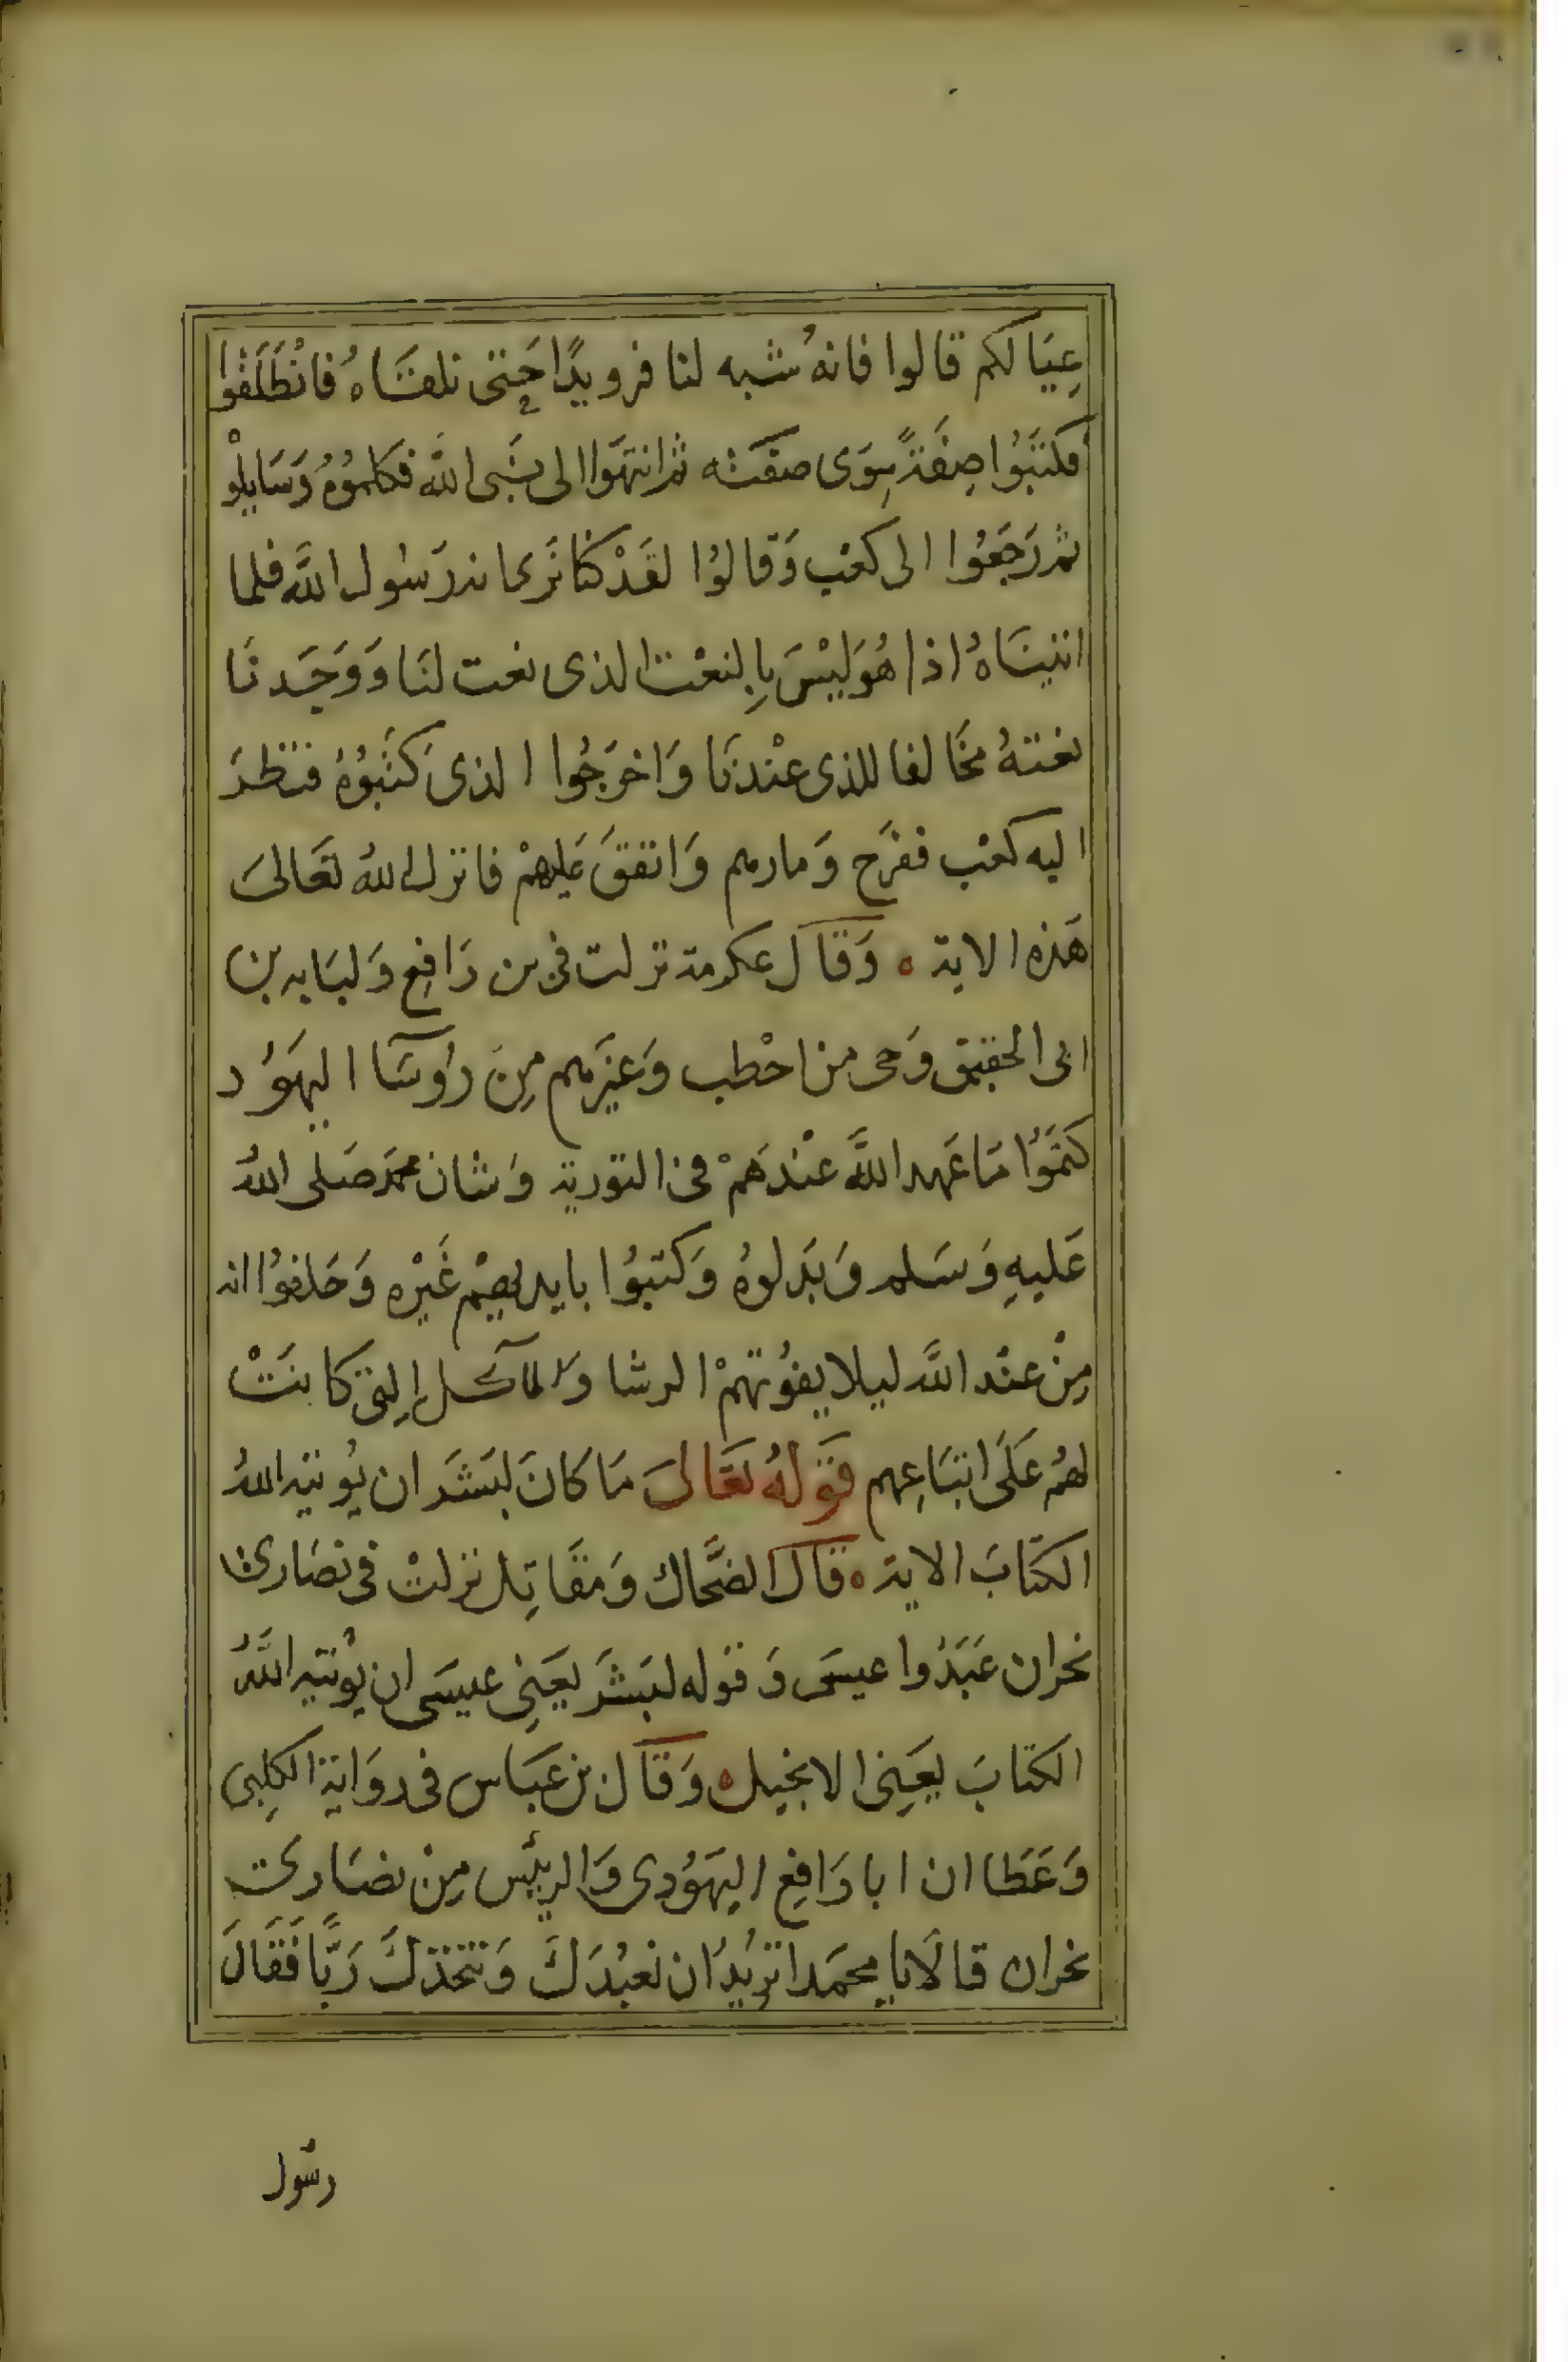 عِيَالكم قالوا فانهُ شبه لنا فرويدًا حَتى نلقَاهُ فانْطَلَقُوا
فكتَبُوا صِفَةً سِوَى صفَته ثم انتهَوا الى نَبى اللّه فكلموُهُ وَسَايلوْ
ثم رَجَعُوا الى كعْب وَقالوُا لقَدْ كنا نَرى انه رَسُول اللَّه فلما
اتيناهُ اذا هُوَ ليْسَ بِالنعْت الذى نعت لنَا وَوَجَدنَا
نعتهُ مخَالفا للذى عنْدنَا وَاخرَجُوا الذى كَتَبوُهُ فنظرَ
اليه كعْب ففَرح وَمارهم وَانفقَ عَليهمْ فانزل اللهُ تعَالىَ
هَذه الاية ٥ وَقَالَ عكرمة نزلت فى بن رَافِع وَلبَابه بن
ابى الحقيق وَحى من احْطب وَغيَرهم مِنَ رُاوسَآ اليهَوُد
كتمَوُا مَا عَهد اللَّه عنْدَهمْ فى التورية وَشان محمَد صَلى اللهُ
عَليهِ وَسَلم وَبَدلوهُ وَكتبوُا بايديهِمْ غَيْره وَحَلفوُا انه
مِنْ عنْد اللَّه ليلا يفوُتهمْ الرشا وَالمآكل التِى كانتْ
لهُم عَلَى اتبَاعِهم قَوَلهُ تعَالىَ مَا كانَ لبَشَر ان يُوتيه اللهُ
الكتَابَ الاية ٥ قَالَ الضحَّاك وَمقَاتِل نزلتْ فى نصَارى
نجران عَبَدُوا عيسَى وَقوله لبَشَر يعَنِى عيسَى ان يوُتيه اللَّهُ
الكتَابَ يعَنِى الانجيل ٥ وَقَالَ بن عَباس فى روَاية الكلِبى
وَعَطا ان ابا رَافِع اليهَوُدى وَالريئس مِنْ نصَارى
نجران قالَا يا محمَد اتريُد ان نعبُدَكَ وَنتخذكَ رَبًّا فَقَالَ
رسُول